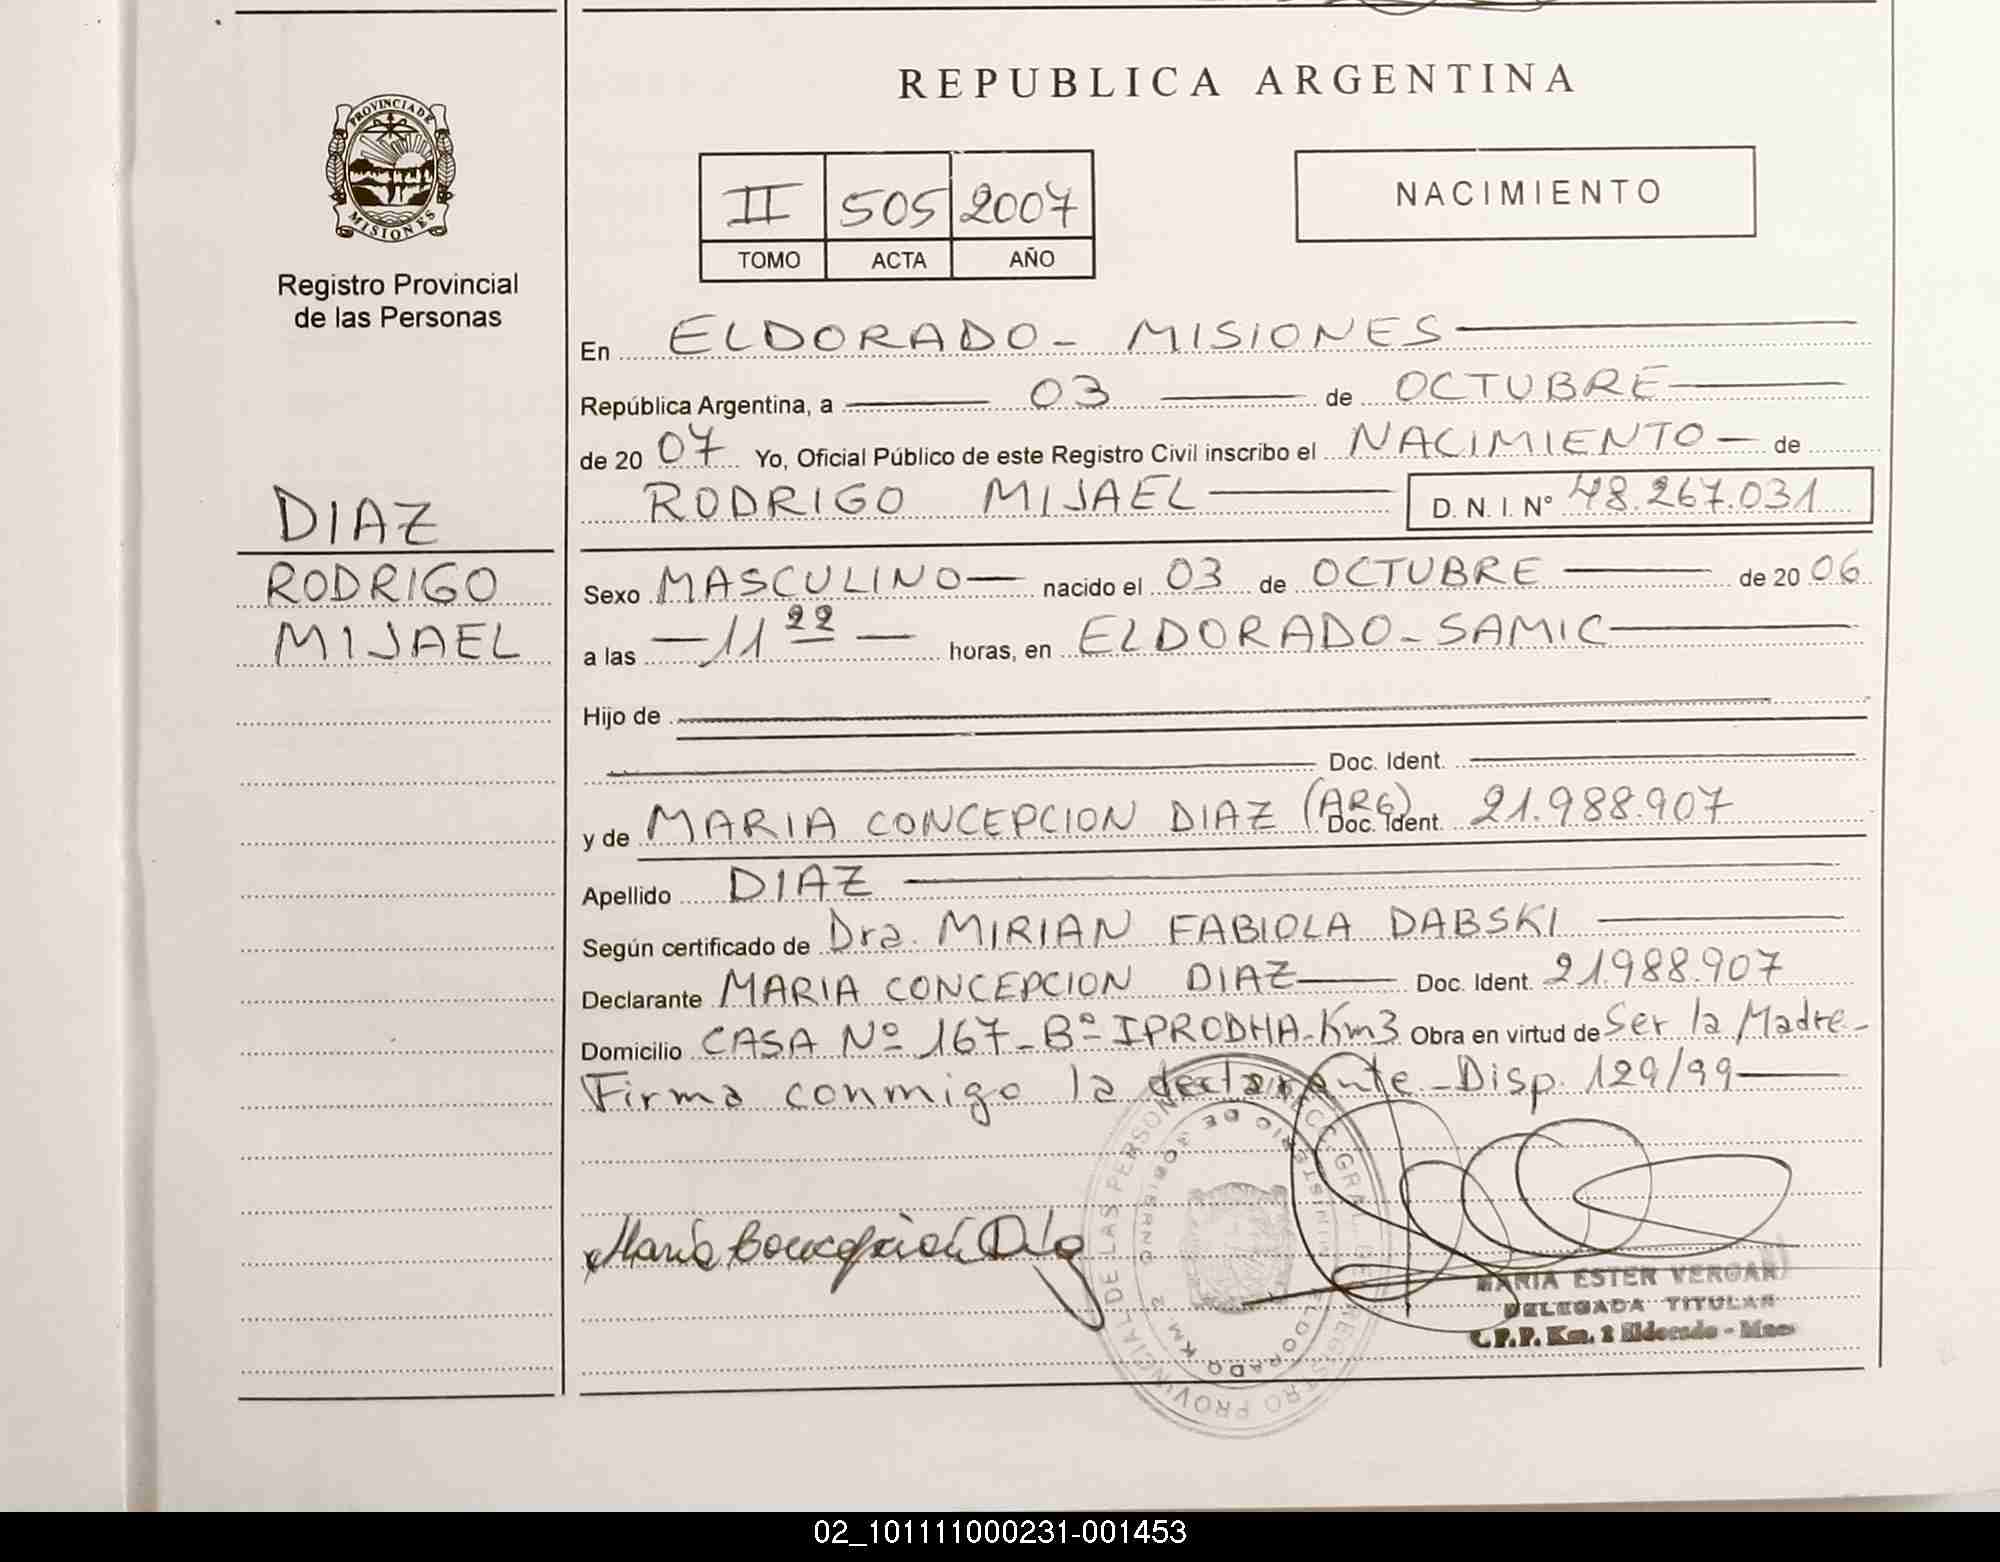 PROVINCIA DE
MISIONES
Registro Provincial
de las Personas
DIAZ
RODRIGO
MIJAEL
REPUBLICA ARGENTINA
II 505 2007
TOMO ACTA AÑO
NACIMIENTO
En ELDORADO - MISIONES
República Argentina, a 03 de OCTUBRE
de 20 07 Yo, Oficial Público de este Registro Civil inscribo el NACIMIENTO - de
RODRIGO MIJAEL D. N. I. Nº 48.267.031
Sexo MASCULINO nacido el 03 de OCTUBRE de 20 06
a las - 11 22 - horas, en ELDORADO - SAMIC
Hijo de
Doc. Ident.
y de MARIA CONCEPCION DIAZ (ARG) Doc. Ident. 21.988.907
Apellido DIAZ
Según certificado de Dra. MIRIAN FABIOLA DABSKI
Declarante MARIA CONCEPCION DIAZ Doc. Ident. 21.988.907
Domicilio CASA Nº 167 - Bº IPRODHA - Km3 Obra en virtud de Ser la Madre -
Firma conmigo la declarante - Disp. 129/99
Maria Concepción
REGISTRO PROVINCIAL DE LAS PERSONAS
MINISTERIO DE GOBIERNO
ELDORADO KM 2
MARIA ESTER VERGARA
DELEGADA TITULAR
R.P.P. Km. 2 Eldorado - Mnes
02_101111000231-001453